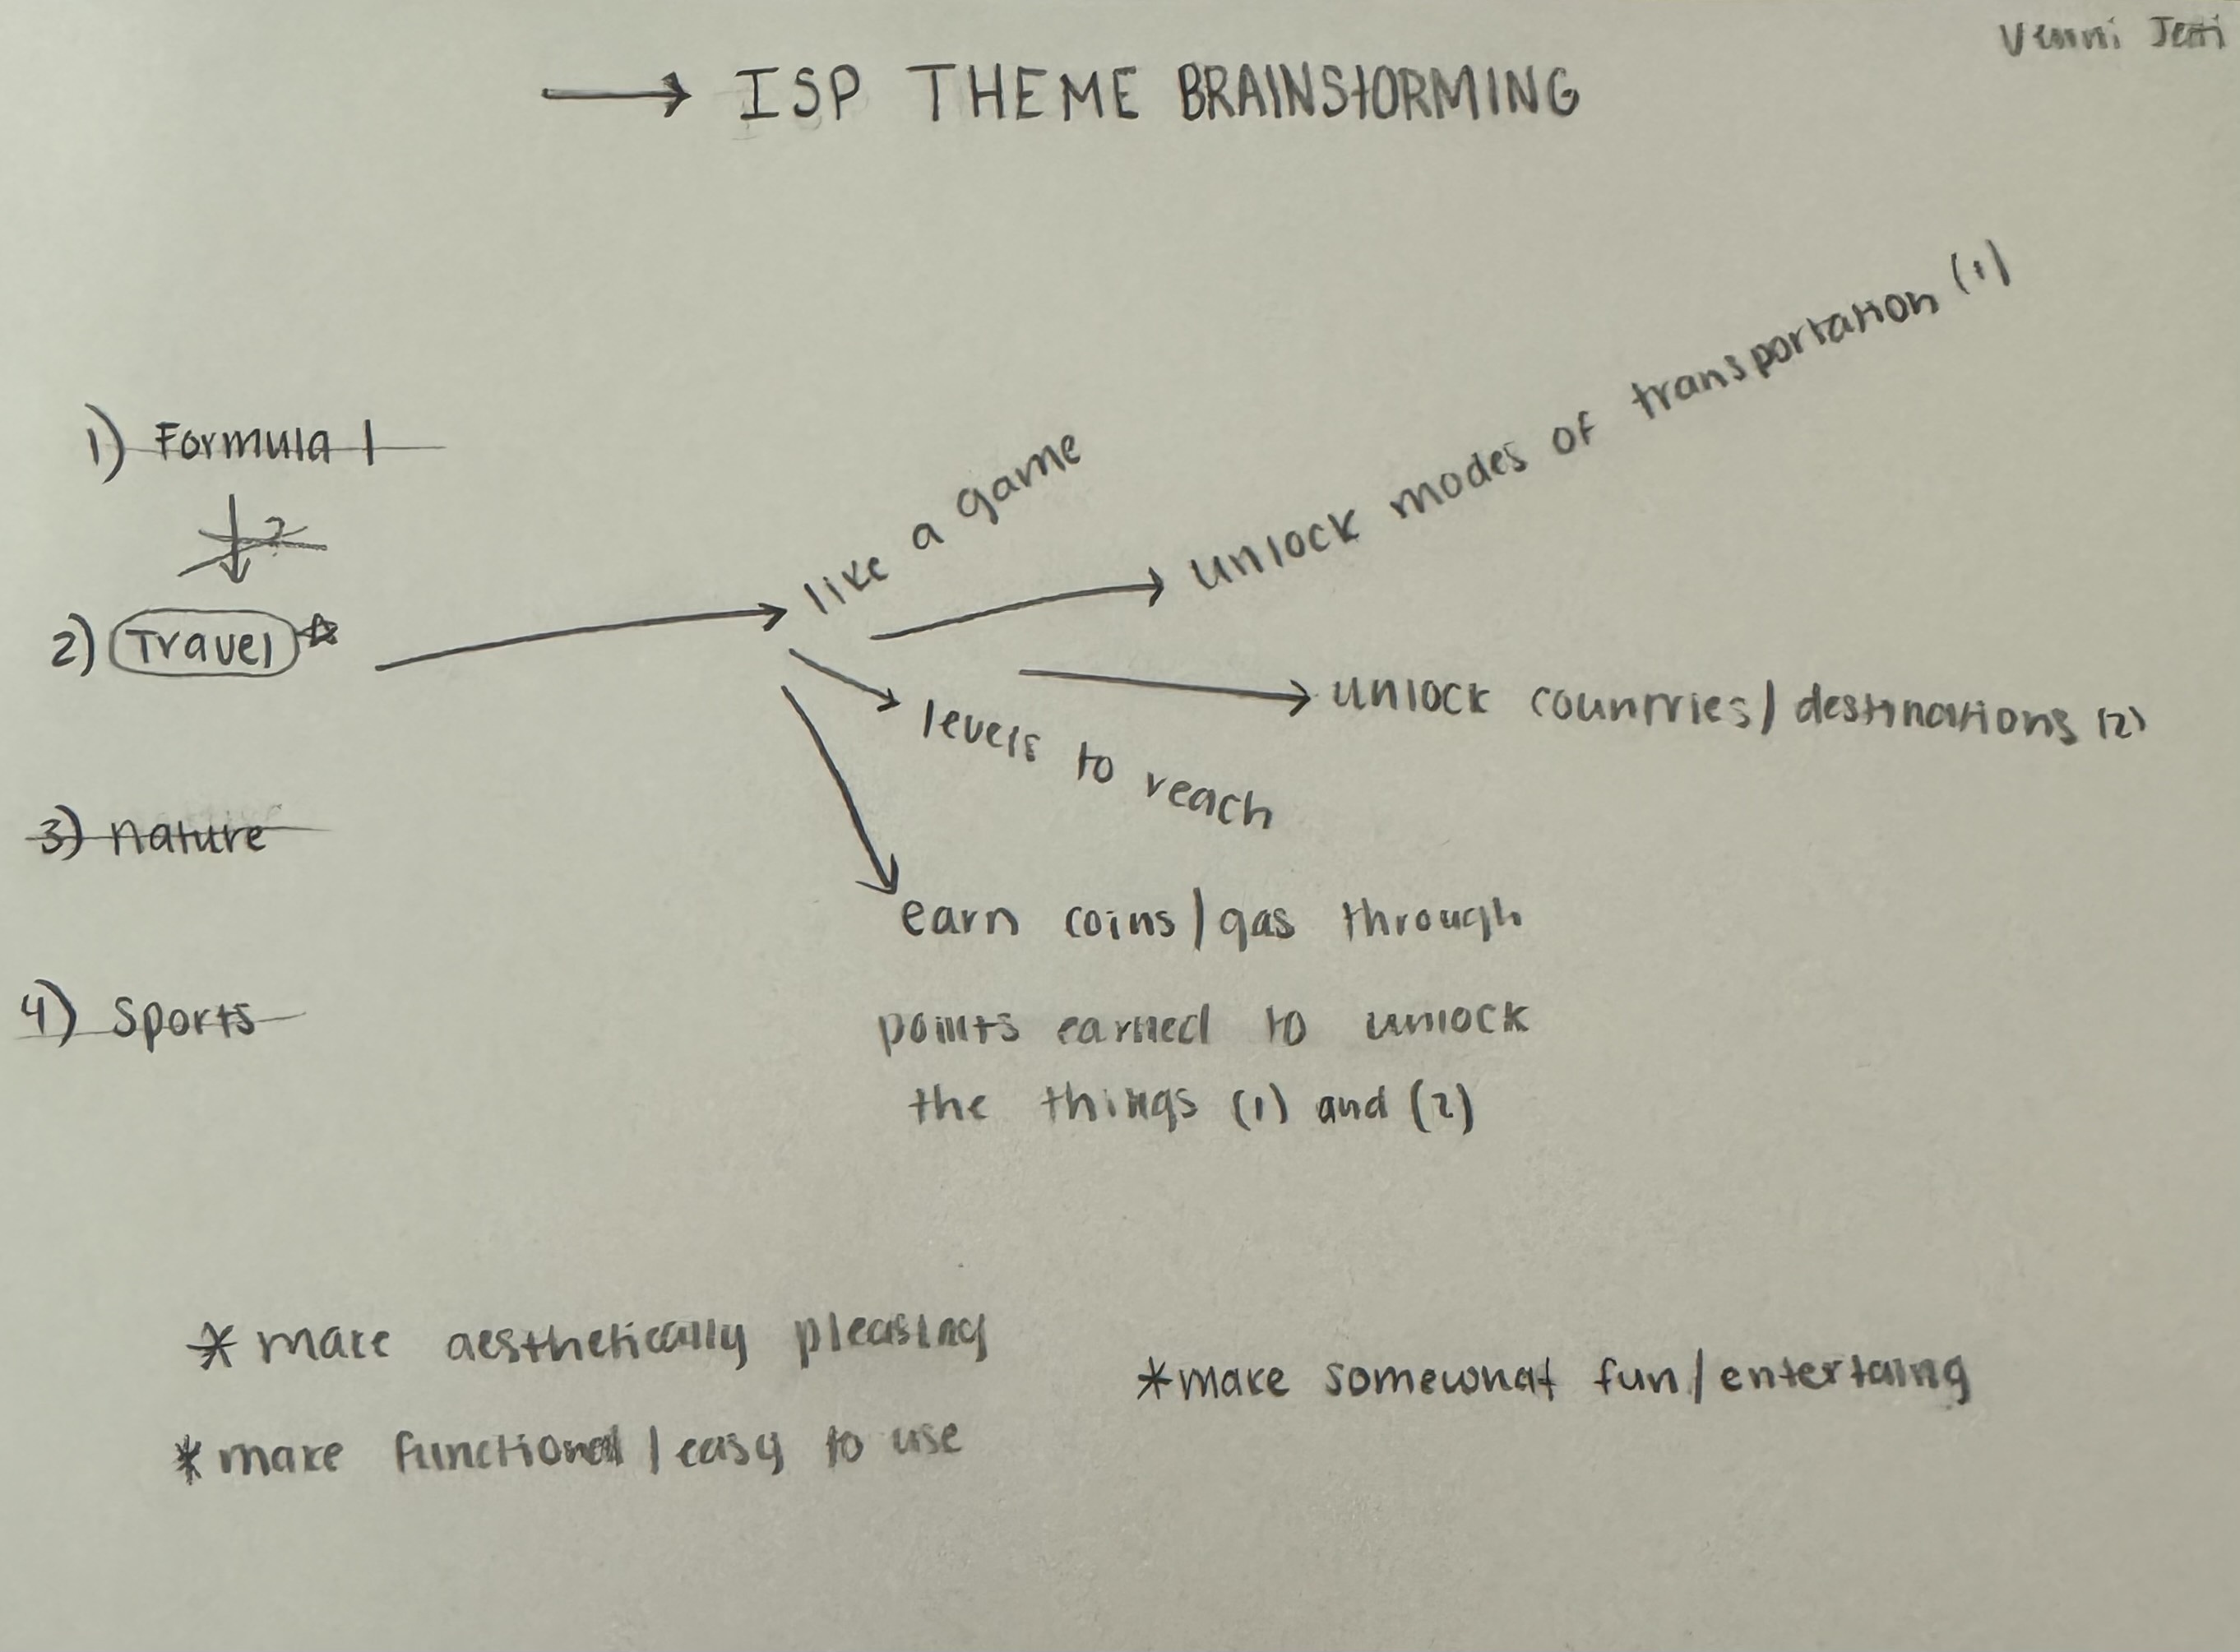 → ISP THEME BRAINStORMING
1) Formula 1
?
2) Travel
3) nature
4) Sports
like a game
unlock modes of transportation (1)
unlock countries/destinations (2)
levels to reach
earn coins/gas through
points earned to unlock
the things (1) and (2)
*make aesthetically pleasing
*make functional/easy to use
*make somewhat fun/entertaing